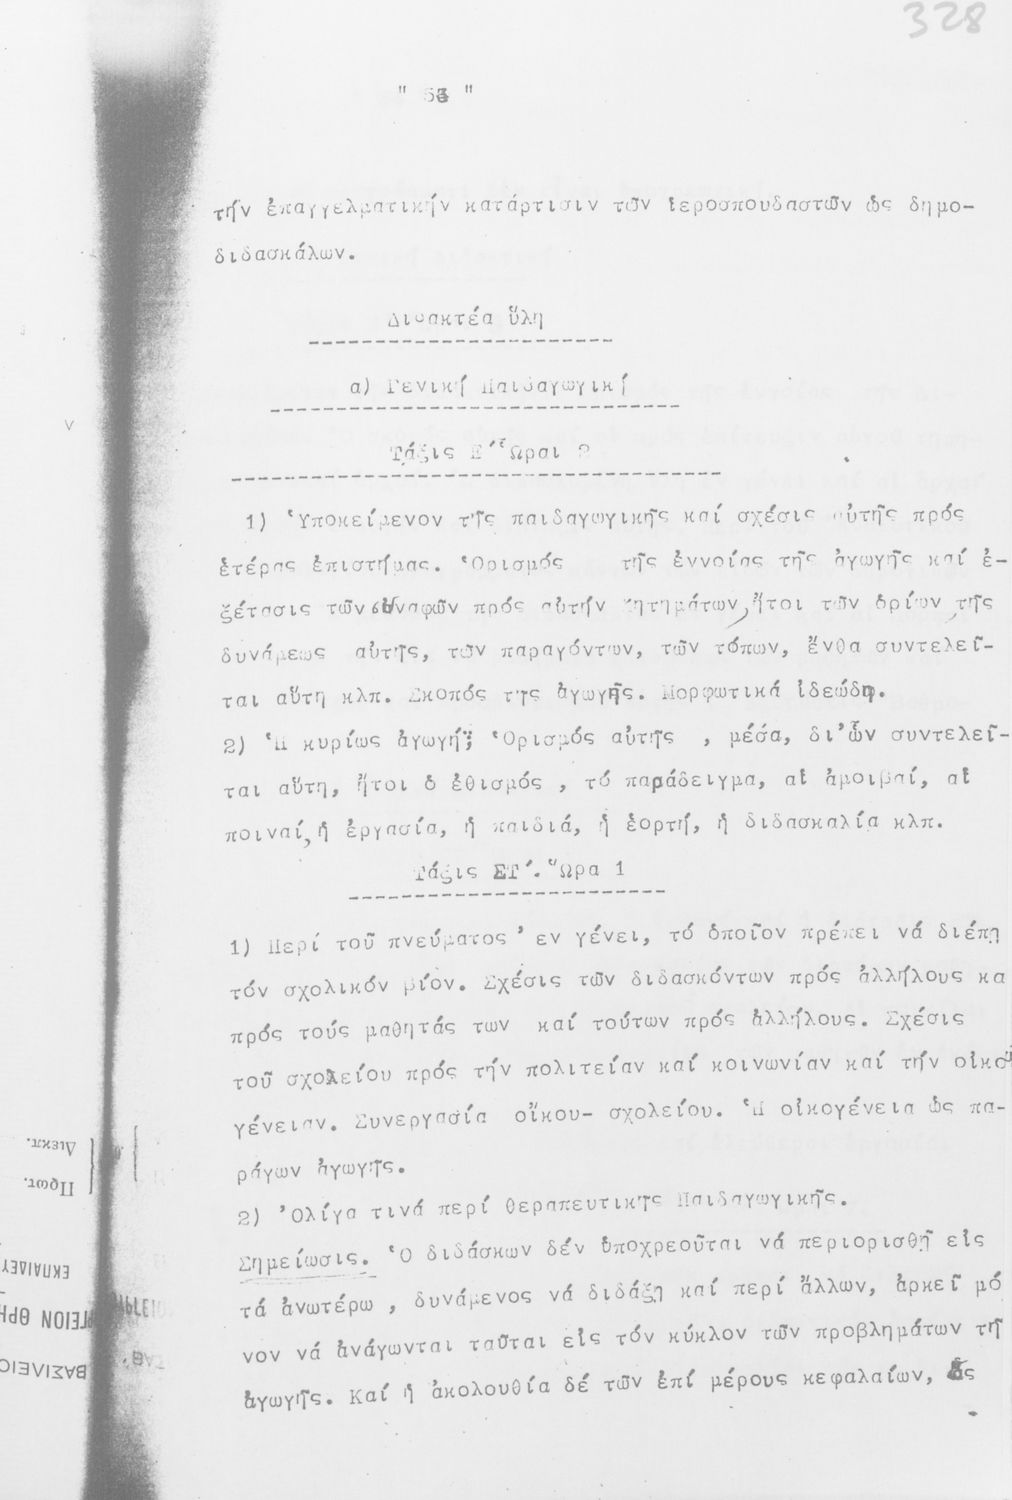 328
" 63 "
τήν ἐπαγγελματικήν κατάρτισιν τῶν ἱεροσπουδαστῶν ὡς δημο-
διδασκάλων.
Διδακτέα ὕλη
α) Γενική Παιδαγωγική
Τάξις Ε΄ Ὧραι 2
1) Ὑποκείμενον τῆς παιδαγωγικῆς καί σχέσις αὐτῆς πρός
ἑτέρας ἐπιστήμας. Ὁρισμός τῆς ἐννοίας τῆς ἀγωγῆς καί ἐ-
ξέτασις τῶν συναφῶν πρός αὐτήν ζητημάτων, ἤτοι τῶν ὁρίων, τῆς
δυνάμεως αὐτῆς, τῶν παραγόντων, τῶν τόπων, ἔνθα συντελεῖ-
ται αὕτη κλπ. Σκοπός τῆς ἀγωγῆς. Μορφωτικά ἰδεώδη.
2) Ἡ κυρίως ἀγωγή; Ὁρισμός αὐτῆς , μέσα, δι'ὧν συντελεῖ-
ται αὕτη, ἤτοι ὁ ἐθισμός , τό παράδειγμα, αἱ ἀμοιβαί, αἱ
ποιναί, ἡ ἐργασία, ἡ παιδιά, ἡ ἑορτή, ἡ διδασκαλία κλπ.
Τάξις ΣΤ΄. Ὥρα 1
1) Περί τοῦ πνεύματος ᾿εν γένει, τό ὁποῖον πρέπει νά διέπῃ
τόν σχολικόν βίον. Σχέσις τῶν διδασκόντων πρός ἀλλήλους κα
πρός τούς μαθητάς των καί τούτων πρός ἀλλήλους. Σχέσις
τοῦ σχολείου πρός τήν πολιτείαν καί κοινωνίαν καί τήν οἰκο
γένειαν. Συνεργασία οἴκου- σχολείου. Ἡ οἰκογένεια ὡς πα-
ράγων ἀγωγῆς.
2) Ὀλίγα τινά περί θεραπευτικῆς Παιδαγωγικῆς.
Σημείωσις. Ὁ διδάσκων δέν ὑποχρεοῦται νά περιορισθῇ εἰς
τά ἀνωτέρω , δυνάμενος νά διδάξῃ καί περί ἄλλων, ἀρκεῖ μό
νον νά ἀνάγωνται ταῦται εἰς τόν κύκλον τῶν προβλημάτων τῆ
ἀγωγῆς. Καί ἡ ἀκολουθία δέ τῶν ἐπί μέρους κεφαλαίων, ὡς
Διεκπ.
Πρωτ.
ΕΚΠΑΙΔΕΥ
ΡΓΕΙΟΝ ΘΡΗ
ΒΑΣΙΛΕΙΟ